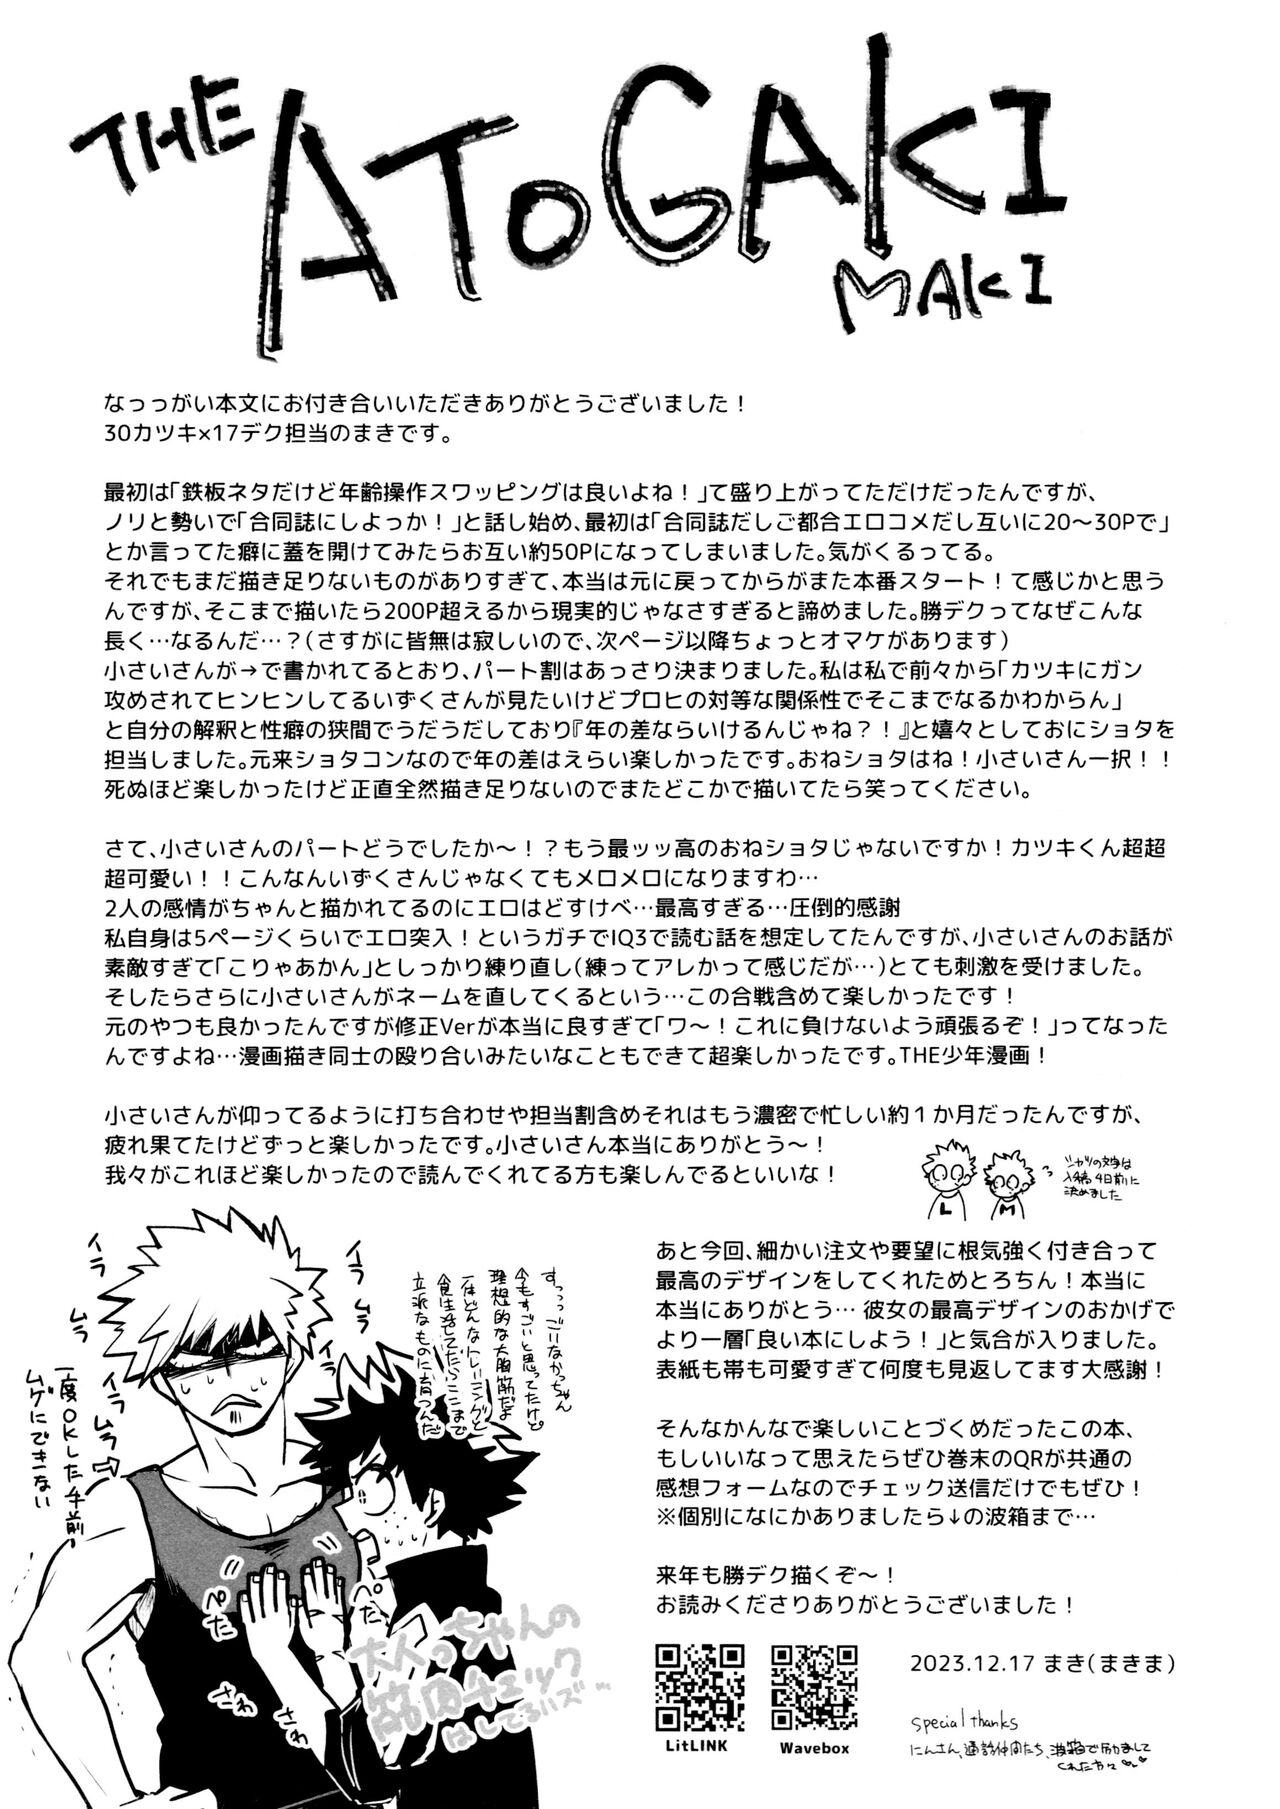 THE
ATOGAKI
MAKI
なっっがい本文にお付き合いいただきありがとうございました！
30カツキ×17デク担当のまきです。
最初は「鉄板ネタだけど年齢操作スワッピングは良いよね！」て盛り上がってただけだったんですが、
ノリと勢いで「合同誌にしよっか！」と話し始め、最初は「合同誌だしご都合エロコメだし互いに20〜30Pで」
とか言ってた癖に蓋を開けてみたらお互い約50Pになってしまいました。気がくるってる。
それでもまだ描き足りないものがありすぎて、本当は元に戻ってからがまた本番スタート！て感じかと思う
んですが、そこまで描いたら200P超えるから現実的じゃなさすぎると諦めました。勝デクってなぜこんな
長く…なるんだ…？（さすがに皆無は寂しいので、次ページ以降ちょっとオマケがあります）
小さいさんが→で書かれてるとおり、パート割はあっさり決まりました。私は私で前々から「カツキにガン
攻めされてヒンヒンしてるいずくさんが見たいけどプロヒの対等な関係性でそこまでなるかわからん」
と自分の解釈と性癖の狭間でうだうだしており『年の差ならいけるんじゃね？！』と嬉々としておにショタを
担当しました。元来ショタコンなので年の差はえらい楽しかったです。おねショタはね！小さいさん一択！！
死ぬほど楽しかったけど正直全然描き足りないのでまたどこかで描いてたら笑ってください。
さて、小さいさんのパートどうでしたか〜！？もう最ッッ高のおねショタじゃないですか！カツキくん超超
超可愛い！！こんなんいずくさんじゃなくてもメロメロになりますわ…
2人の感情がちゃんと描かれてるのにエロはどすけべ…最高すぎる…圧倒的感謝
私自身は5ページくらいでエロ突入！というガチでIQ3で読む話を想定してたんですが、小さいさんのお話が
素敵すぎて「こりゃあかん」としっかり練り直し（練ってアレかって感じだが…）とても刺激を受けました。
そしたらさらに小さいさんがネームを直してくるという…この合戦含めて楽しかったです！
元のやつも良かったんですが修正Verが本当に良すぎて「ワ〜！これに負けないよう頑張るぞ！」ってなった
んですよね…漫画描き同士の殴り合いみたいなこともできて超楽しかったです。THE少年漫画！
小さいさんが仰ってるように打ち合わせや担当割含めそれはもう濃密で忙しい約１か月だったんですが、
疲れ果てたけどずっと楽しかったです。小さいさん本当にありがとう〜！
我々がこれほど楽しかったので読んでくれてる方も楽しんでるといいな！
L
M
シャツの文字は
入稿4日前に
決めました
あと今回、細かい注文や要望に根気強く付き合って
最高のデザインをしてくれためとろちん！本当に
本当にありがとう… 彼女の最高デザインのおかげで
より一層「良い本にしよう！」と気合が入りました。
表紙も帯も可愛すぎて何度も見返してます大感謝！
そんなかんなで楽しいことづくめだったこの本、
もしいいなって思えたらぜひ巻末のQRが共通の
感想フォームなのでチェック送信だけでもぜひ！
※個別になにかありましたら↓の波箱まで…
来年も勝デク描くぞ〜！
お読みくださりありがとうございました！
LitLINK
Wavebox
2023.12.17 まき（まきま）
special thanks
にんさん、通話仲間たち、波箱で励まして
くれた方々
すっっっごいなかっちゃん
今もすごいと思ってたけど
理想的な大胸筋だよ
一体どんなトレーニングと
食生活してたらここまで
立派なものに育つんだ
イラ
ムラ
イラ
イラ
ムラ
一度OKした手前
ムゲにできない
ぺた
ぺた
さわ
さわ
大人っちゃんの
筋肉チェック
はしてるいズ…